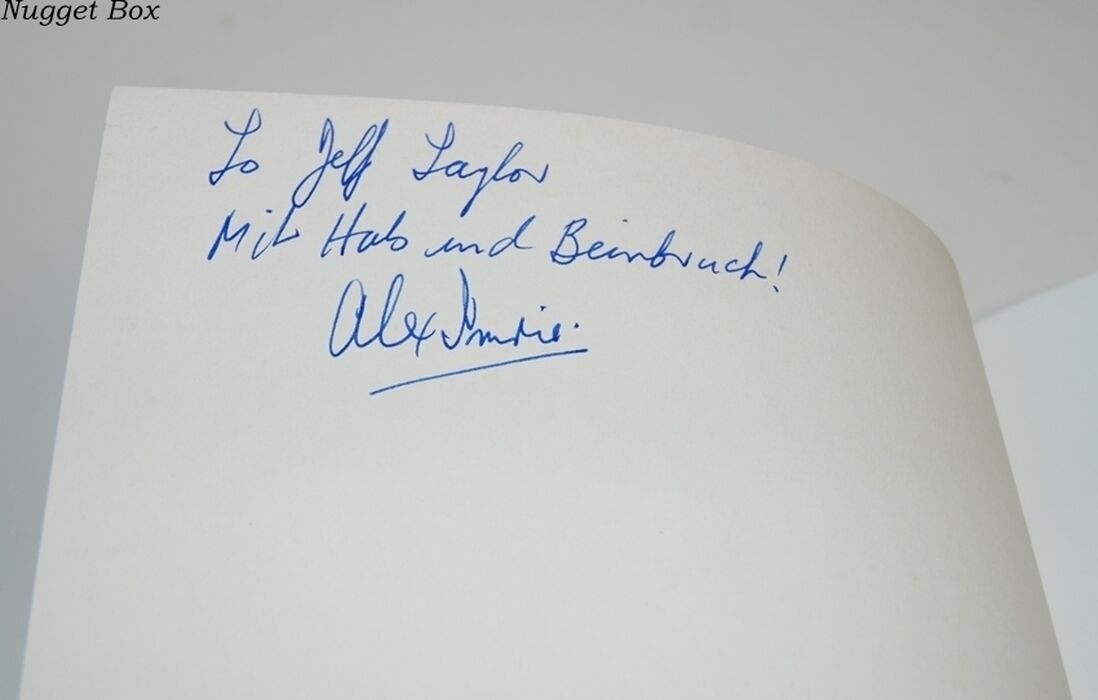 Nugget Box
To Jeff Taylor
Mit Hals und Beinbruch!
Alex Imrie.